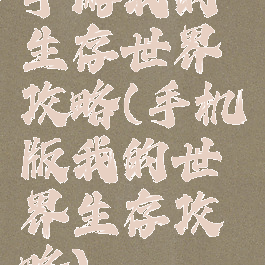 手略我的
生存世界
攻略(手机
版我的世
界生存攻
略)